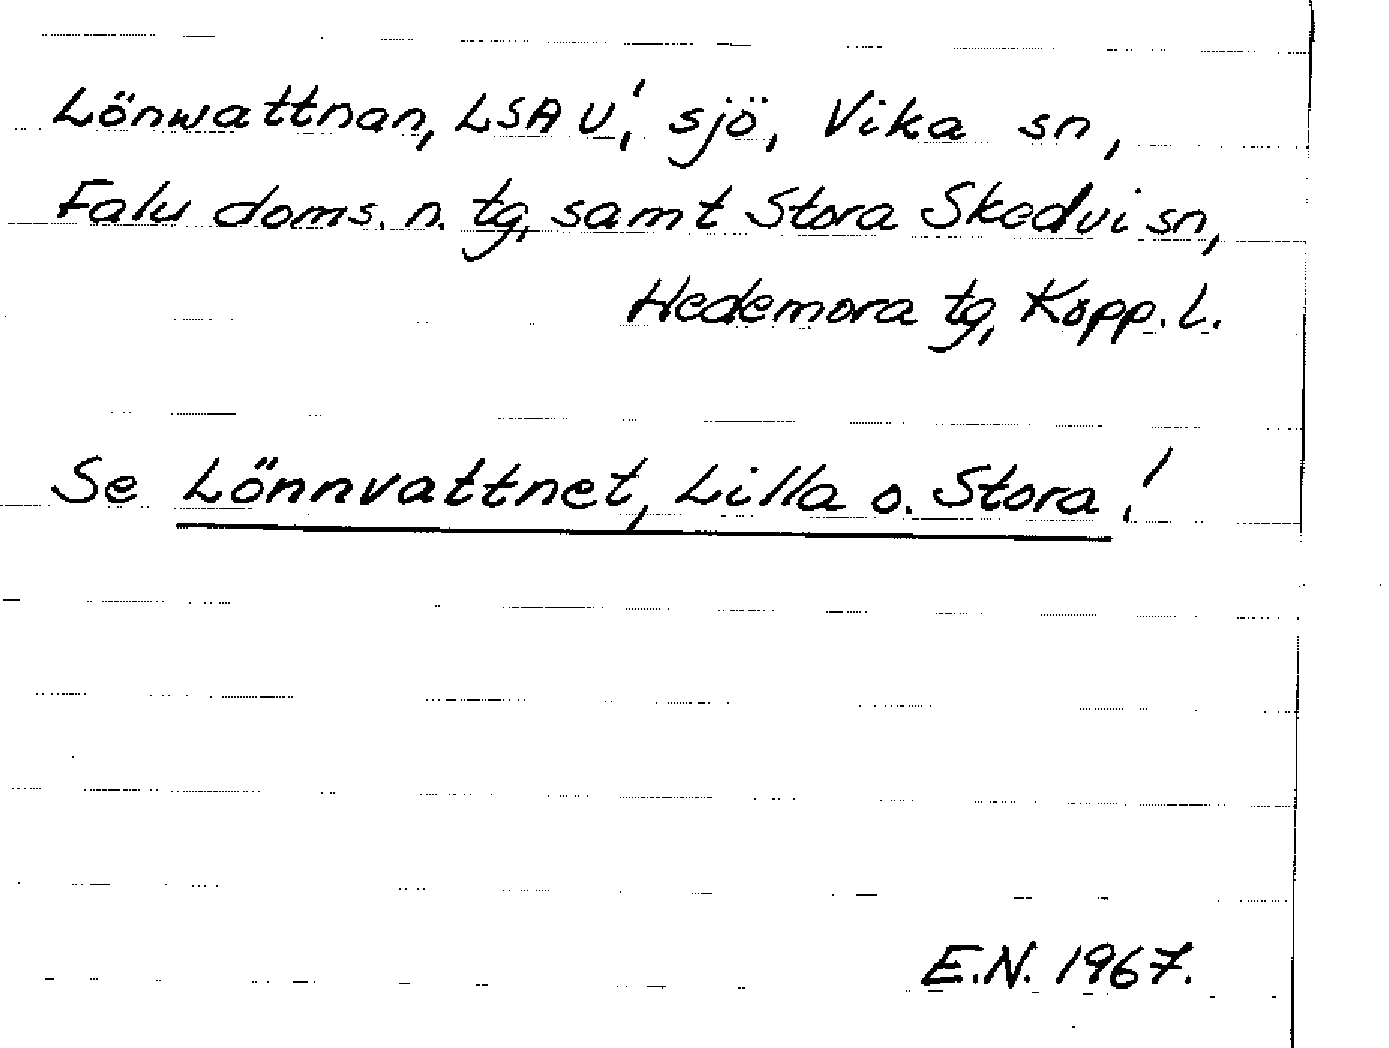 Lönwattnan, LSA U!, sjö, Vika sn,
Falu doms. n. tg, samt Stora Skedvi sn,
Hedemora tg, Kopp. l.
Se Lönnvattnet, Lilla o. Stora!
E.N. 1967.